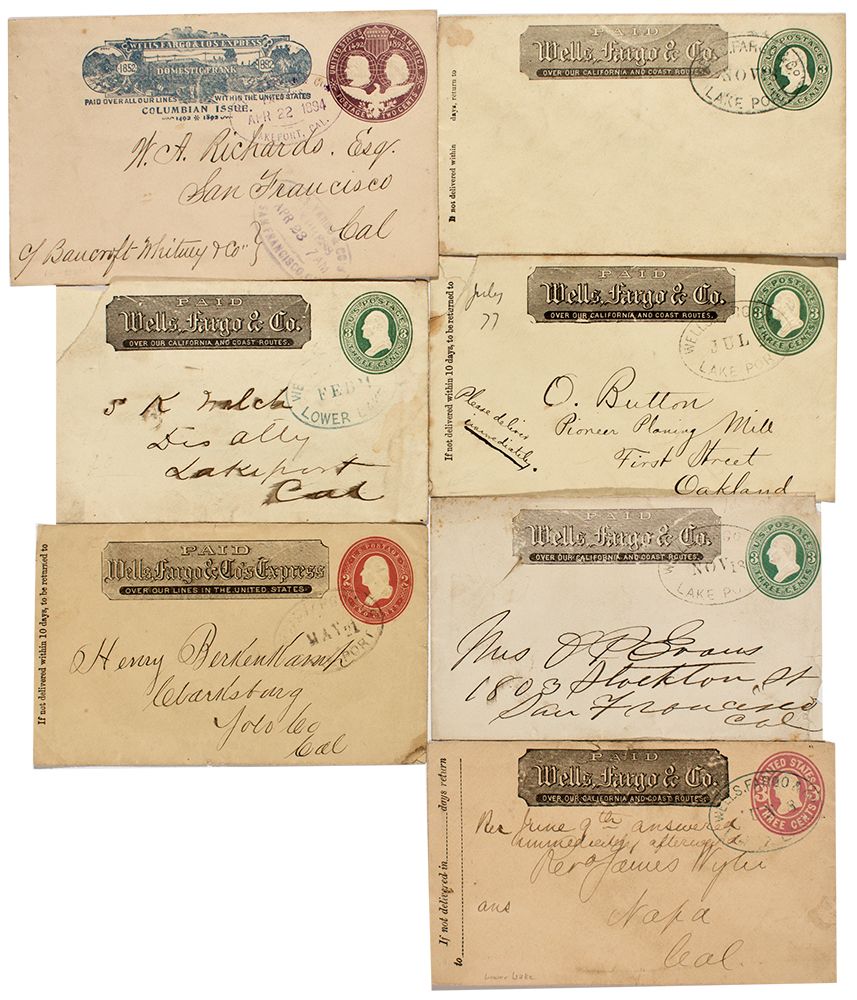 WELLS FARGO & CO'S EXPRESS
1852 1892
DOMESTIC FRANK
PAID OVER ALL OUR LINES WITHIN THE UNITED STATES
COLUMBIAN ISSUE.
1492 1892
UNITED STATES OF AMERICA
1492 1892
POSTAGE TWO CENTS
APR 22 1894
LAKEPORT, CAL.
W. A. Richards, Esq.
San Francisco
Cal
c/ Bancroft-Whitney & Co"
APR 23
7 AM
SAN FRANCISCO
If not delivered within days, return to
PAID
Wells, Fargo & Co.
OVER OUR CALIFORNIA AND COAST ROUTES.
U.S. POSTAGE
3 3
NOV
LAKE PORT
PAID
Wells, Fargo & Co.
OVER OUR CALIFORNIA AND COAST ROUTES.
U.S. POSTAGE
3 3
THREE CENTS
FEB
LOWER LAKE
S K Welch
Dis atty
Lakeport
Cal
If not delivered within 10 days, to be returned to
July
77
PAID
Wells, Fargo & Co.
OVER OUR CALIFORNIA AND COAST ROUTES.
U.S. POSTAGE
3 3
THREE CENTS
WELLS FARGO
JUL
LAKE PORT
Please deliver
immediately.
O. Button
Pioneer Planing Mill
First Street
Oakland
If not delivered within 10 days, to be returned to
PAID
Wells Fargo & Co's Express
OVER OUR LINES IN THE UNITED STATES.
U.S. POSTAGE
2 2
MAY 21
PORT
Henry
Clarksburg
Yolo Co
Cal
PAID
Wells, Fargo & Co.
OVER OUR CALIFORNIA AND COAST ROUTES.
U.S. POSTAGE
3 3
THREE CENTS
NOV 18
LAKE PORT
Mrs Evans
1803 Stockton St
San Francisco
Cal
If not delivered in days return
to
PAID
Wells, Fargo & Co.
OVER OUR CALIFORNIA AND COAST ROUTES.
UNITED STATES
3 3
THREE CENTS
WELLS, FARGO &
Rec June 9th answered
immediately afterward
Rev James Wylie
ans
Napa
Cal.
Lower Lake